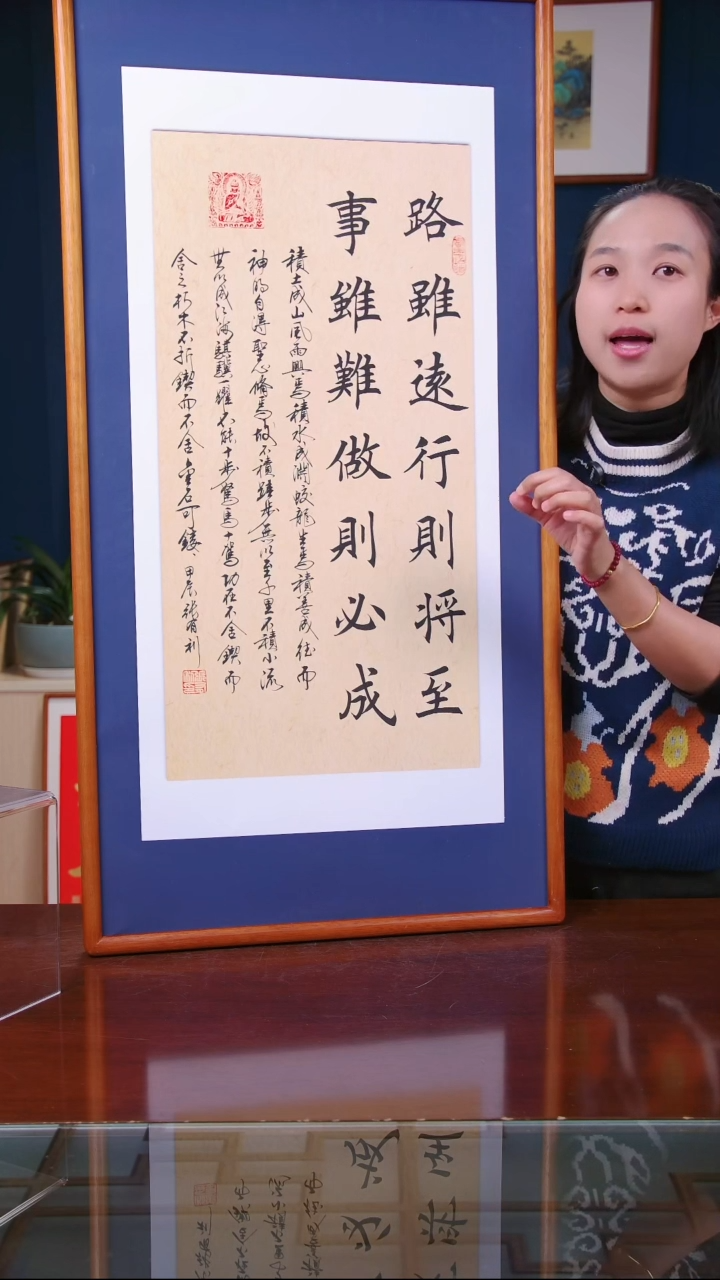 路雖遠行則将至
事雖難做則必成
積土成山風雨興焉積水成淵蛟龍生焉積善成德而
神明自得聖心備焉故不積蹞步無以至千里不積小流
無以成江海騏驥一躍不能十步駑馬十駕功在不舍鍥而
舍之朽木不折鍥而不舍金石可鏤 甲辰張有利